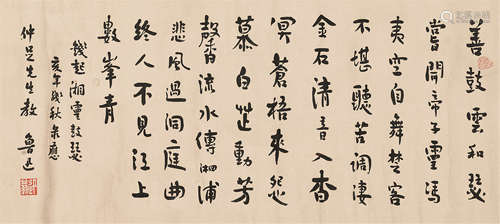 善鼓雲和瑟
嘗聞帝子靈馮
夷空自舞楚客
不堪聽苦調淒
金石清音入杳
冥蒼梧來怨
慕白芷動芳
馨流水傳湘浦
悲風過洞庭曲
終人不見江上
數峯青
錢起湘靈鼓瑟
亥年殘秋录應
仲足先生教 魯迅